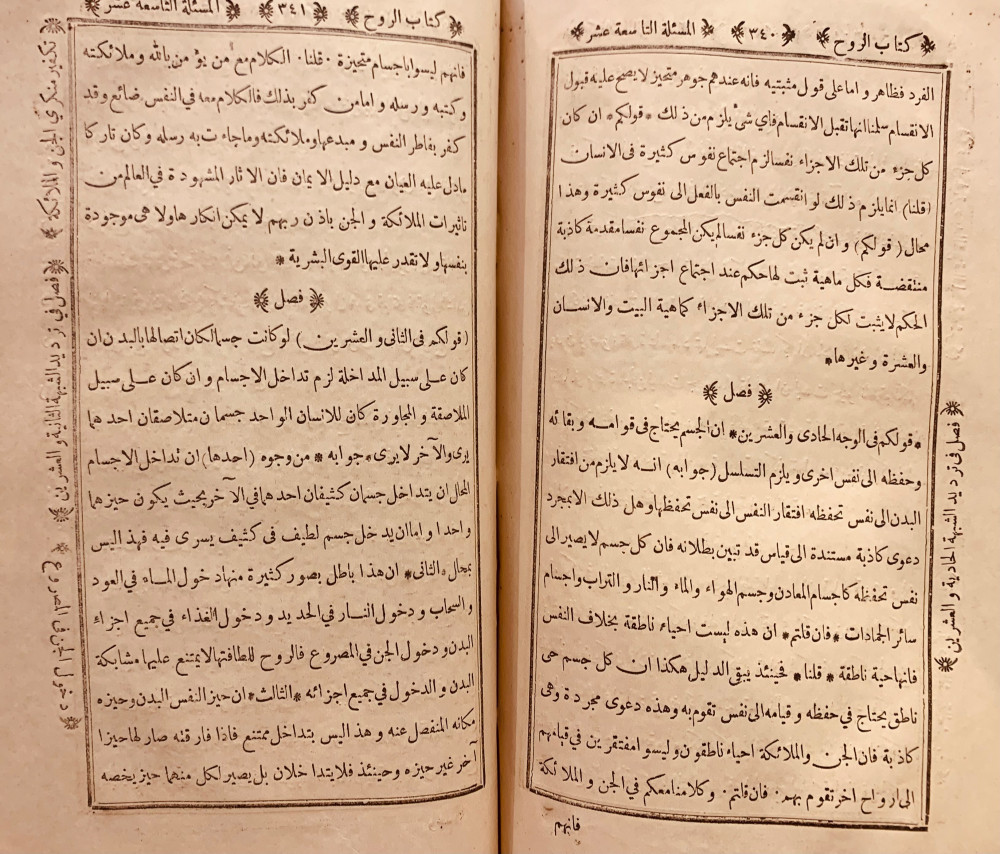 كتاب الروح ٣٤٠ المسئلة التاسعة عشر
الفرد فظاهر و اما على قول مثبتيه فانه عندهم جوهر متحيز لا يصح عليه قبول
الانقسام سلمنا انها تقبل الانقسام فاي شئ يلزم من ذلك * قولكم * ان كان
كل جزء من تلك الاجزاء نفسا لزم اجتماع نفوس كثيرة فى الانسان
(قلنا) انما يلزم ذلك لو انقسمت النفس بالفعل الى نفوس كثيرة و هذا
محال (قولكم) و ان لم يكن كل جزء نفسا لم يكن المجموع نفسا مقدمة كاذبة
منتقضة فكل ماهية ثبت لها حكم عند اجتماع اجزائها فان ذلك
الحكم لا يثبت لكل جزء من تلك الاجزاء كماهية البيت والانسان
والعشرة و غيرها*
فصل
* قولكم فى الوجه الحادى والعشرين* ان الجسم يحتاج فى قوامه و بقائه
وحفظه الى نفس اخرى و يلزم التسلسل (جوابه) انه لا يلزم من افتقار
البدن الى نفس تحفظه افتقار النفس الى نفس تحفظها و هل ذلك الا بمجرد
دعوى كاذبة مستندة الى قياس قد تبين بطلانه فان كل جسم لا يصير الى
نفس تحفظه كاجسام المعادن و جسم الهواء و الماء و النار و التراب و اجسام
سائر الجمادات * فان قلتم * ان هذه ليست احياء ناطقة بخلاف النفس
فانها حية ناطقة * قلنا * فحينئذ يبقى الدليل هكذا ان كل جسم حى
ناطق يحتاج في حفظه و قيامه الى نفس تقوم به وهذه دعوى مجردة وهى
كاذبة فان الجن و الملائكة احياء ناطقون و ليسوا مفتقرين في قيامهم
الى ارواح اخر تقوم بهم . فان قلتم . و كلامنا معكم في الجن و الملائكة
فانهم
فصل فى ترديد الشبهة الحادية و العشرين
كتاب الروح ٣٤١ المسئلة التاسعة عشر
فانهم ليسوا باجسام متحيزة . قلنا . الكلام مع من يؤمن بالله و ملائكته
و كتبه و رسله و اما من كفر بذلك فالكلام معه في النفس ضائع وقد
كفر بفاطر النفس و مبدعها و ملائكته و ما جاءت به رسله وكان تاركا
ما دل عليه العيان مع دليل الايمان فان الاثار المشهودة في العالم من
تاثيرات الملائكة و الجن باذن ربهم لا يمكن انكارها و لا هى موجودة
بنفسها و لا تقدر عليها القوى البشرية *
فصل
(قولكم فى الثانى و العشرين) لو كانت جسما لكان اتصالها بالبدن ان
كان على سبيل المداخلة لزم تداخل الاجسام و ان كان على سبيل
الملاصقة و المجاورة كان للانسان الواحد جسمان متلاصقان احدهما
يرى والآخر لا يرى * جوابه * من وجوه (احدها) ان تداخل الاجسام
المحال ان يتداخل جسمان كثيفان احدهما في الآخر بحيث يكون حيزهما
واحدا و اما ان يدخل جسم لطيف فى كثيف يسرى فيه فهذا ليس
بمحال * الثانى * ان هذا باطل بصور كثيرة منها دخول الماء في العود
و السحاب و دخول النار في الحديد و دخول الغذاء في جميع اجزاء
البدن و دخول الجن في المصروع فالروح للطافتها لا يمتنع عليها مشابكة
البدن و الدخول في جميع اجزائه * الثالث * ان حيز النفس البدن و حيزه
مكانه المنفصل عنه و هذا ليس بتداخل ممتنع فاذا فارقته صار لها حيزا
آخر غير حيزه و حينئذ فلا يتداخلان بل يصير لكل منهما حيز يخصه
تكفير منكري الجن و الملائكة
فصل في ترديد الشبهة الثانية و العشرين